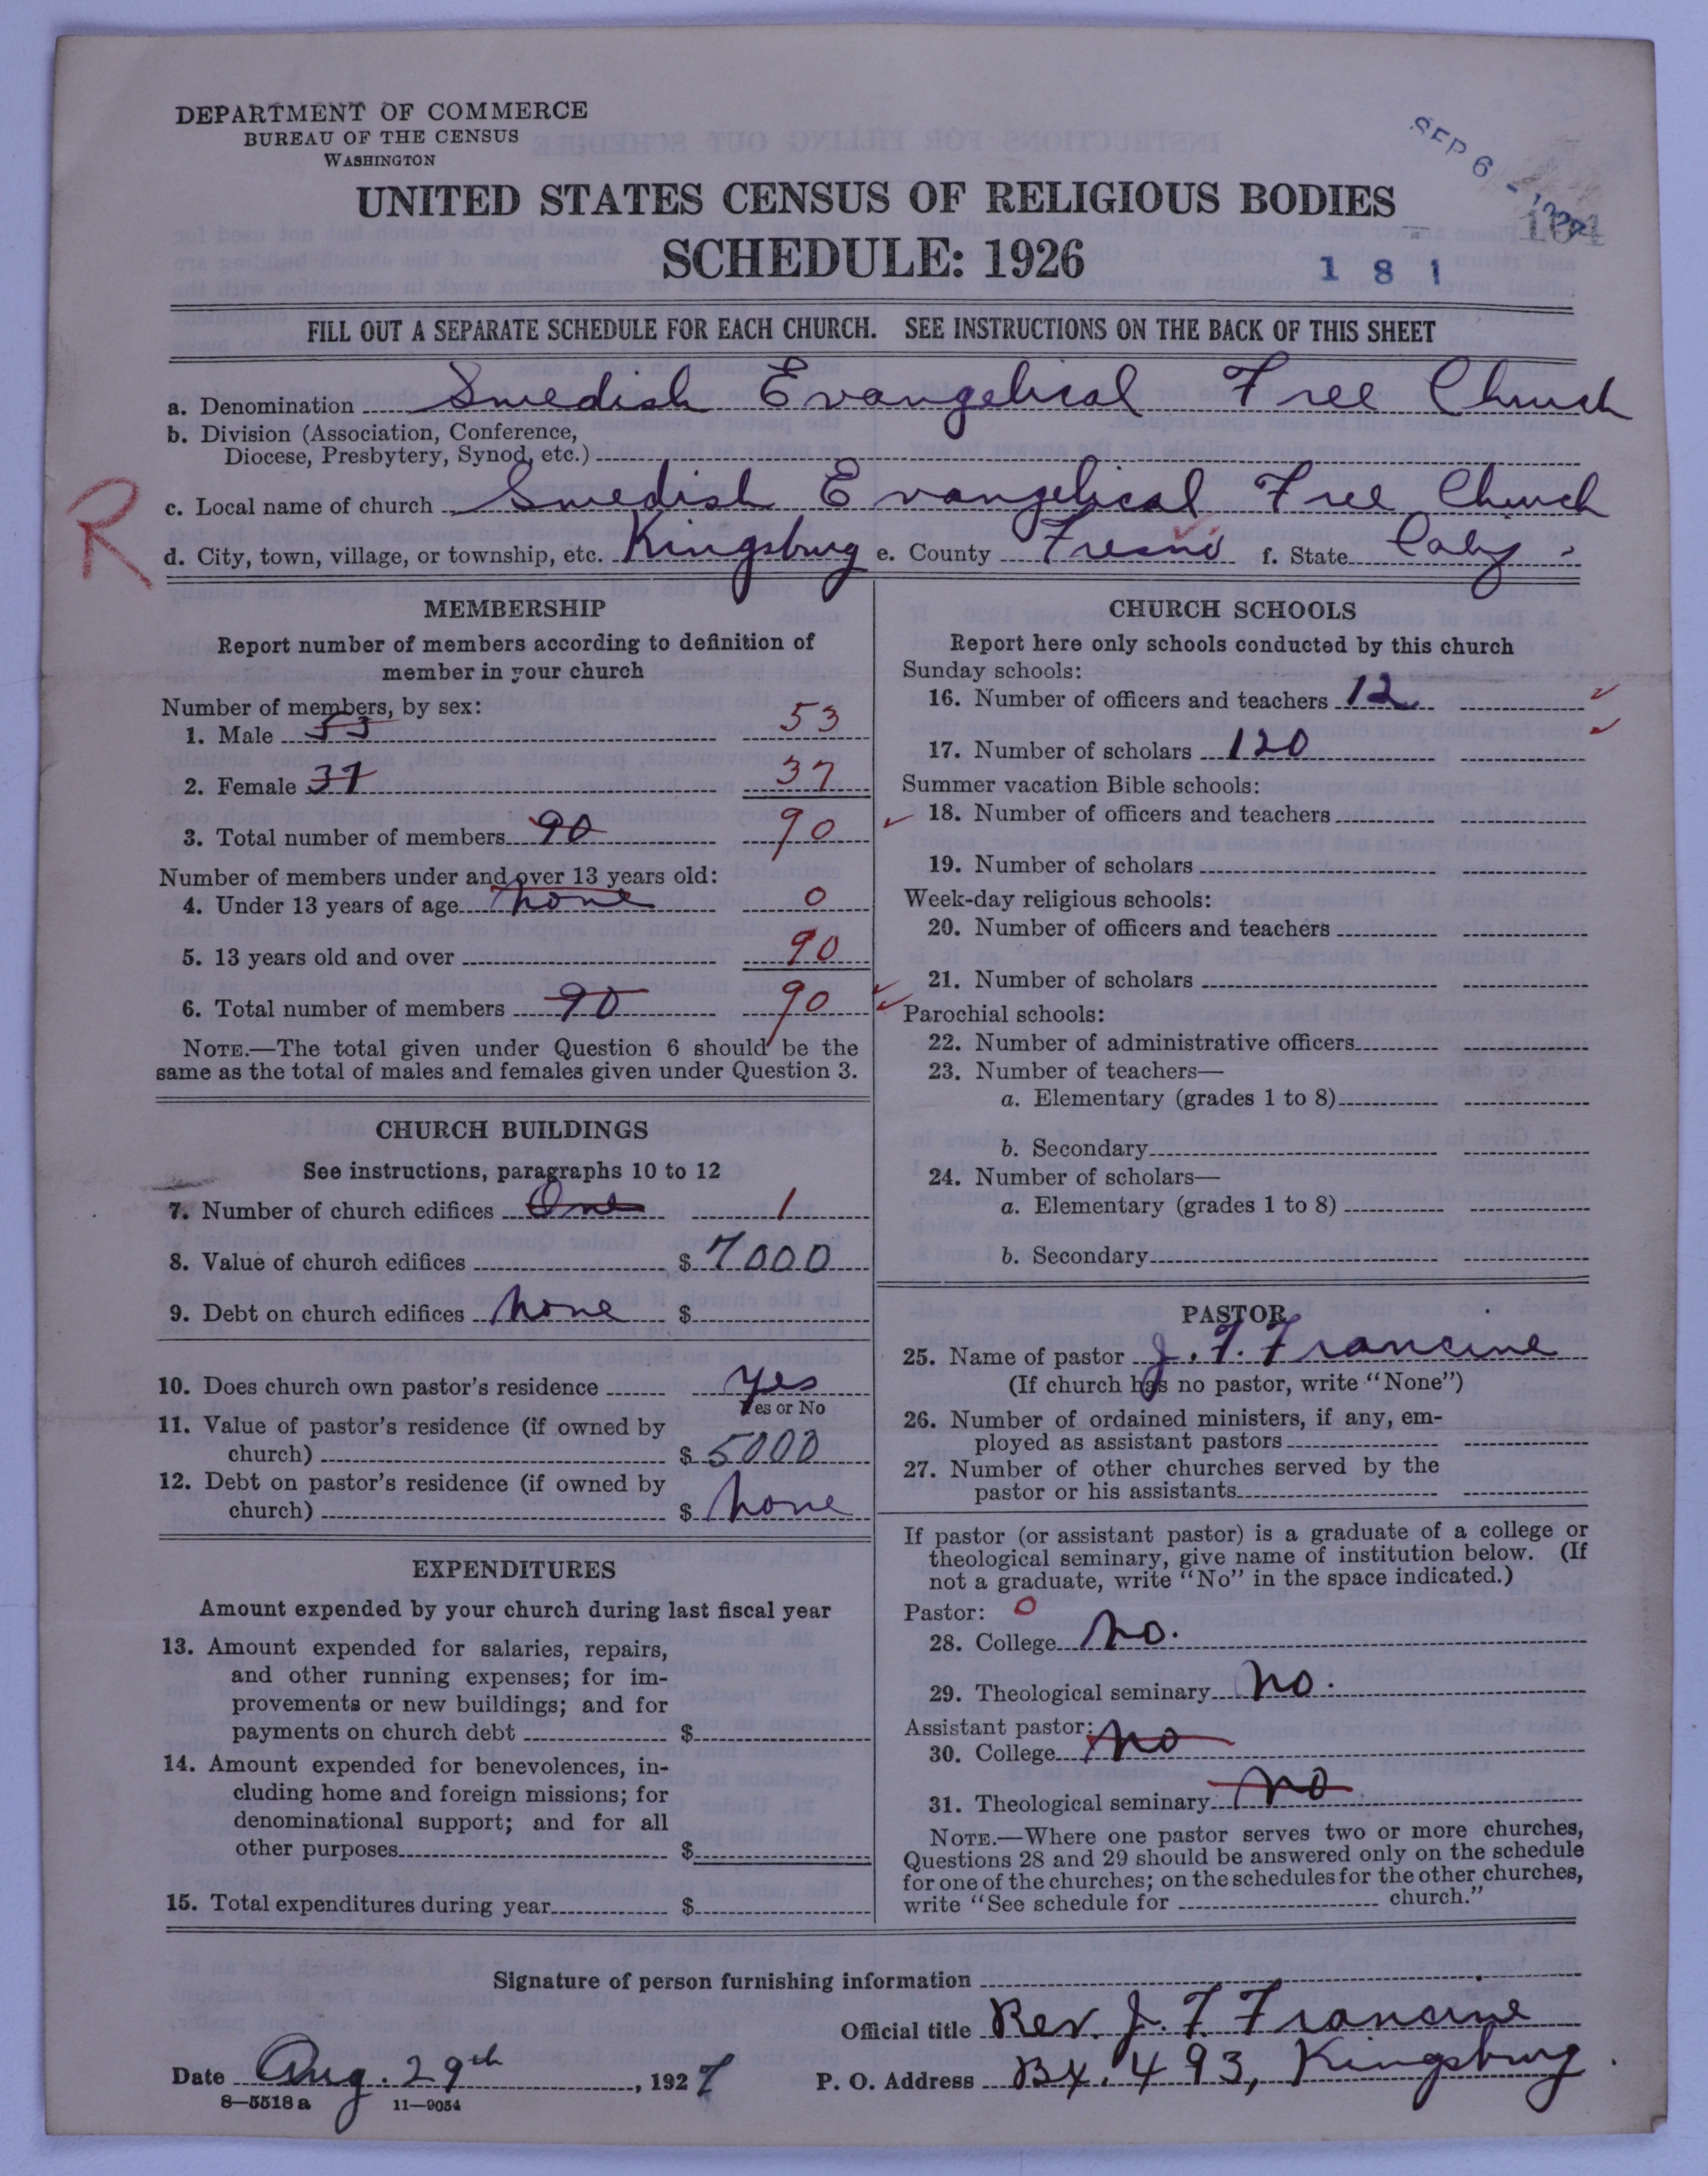 DEPARTMENT OF COMMERCE
BUREAU OF THE CENSUS
WASHINGTON
SEP 6 - 1927
UNITED STATES CENSUS OF RELIGIOUS BODIES
SCHEDULE: 1926
181
FILL OUT A SEPARATE SCHEDULE FOR EACH CHURCH. SEE INSTRUCTIONS ON THE BACK OF THIS SHEET
a. Denomination Swedish Evangelical Free Church
b. Division (Association, Conference,
Diocese, Presbytery, Synod, etc.)
R
c. Local name of church Swedish Evangelical Free Church
d. City, town, village, or township, etc. Kingsburg e. County Fresno f. State Calif.
MEMBERSHIP
Report number of members according to definition of
member in your church
Number of members, by sex:
1. Male 53 53
2. Female 37 37
3. Total number of members 90 90
Number of members under and over 13 years old:
4. Under 13 years of age none 0
5. 13 years old and over 90
6. Total number of members 90 90
NOTE.—The total given under Question 6 should be the
same as the total of males and females given under Question 3.
CHURCH BUILDINGS
See instructions, paragraphs 10 to 12
7. Number of church edifices One 1
8. Value of church edifices $ 7000
9. Debt on church edifices None $
10. Does church own pastor's residence Yes
Yes or No
11. Value of pastor's residence (if owned by
church) $ 5000
12. Debt on pastor's residence (if owned by
church) $ None
EXPENDITURES
Amount expended by your church during last fiscal year
13. Amount expended for salaries, repairs,
and other running expenses; for im-
provements or new buildings; and for
payments on church debt $
14. Amount expended for benevolences, in-
cluding home and foreign missions; for
denominational support; and for all
other purposes $
15. Total expenditures during year $
CHURCH SCHOOLS
Report here only schools conducted by this church
Sunday schools:
16. Number of officers and teachers 12
17. Number of scholars 120
Summer vacation Bible schools:
18. Number of officers and teachers
19. Number of scholars
Week-day religious schools:
20. Number of officers and teachers
21. Number of scholars
Parochial schools:
22. Number of administrative officers
23. Number of teachers—
a. Elementary (grades 1 to 8)
b. Secondary
24. Number of scholars—
a. Elementary (grades 1 to 8)
b. Secondary
PASTOR
25. Name of pastor J. F. Francine
(If church has no pastor, write "None")
26. Number of ordained ministers, if any, em-
ployed as assistant pastors
27. Number of other churches served by the
pastor or his assistants
If pastor (or assistant pastor) is a graduate of a college or
theological seminary, give name of institution below. (If
not a graduate, write "No" in the space indicated.)
Pastor: 0
28. College No.
29. Theological seminary No.
Assistant pastor:
30. College No
31. Theological seminary No
NOTE.—Where one pastor serves two or more churches,
Questions 28 and 29 should be answered only on the schedule
for one of the churches; on the schedules for the other churches,
write "See schedule for church."
Signature of person furnishing information
Official title Rev. J. F. Francine
Date Aug. 29th, 1927 P. O. Address Bx. 493, Kingsburg.
8—5518a 11—9054